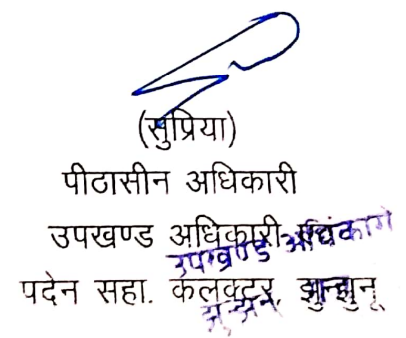 (सुप्रिया)
पीठासीन अधिकारी
उपखण्ड अधिकारी एवं
पदेन सहा. कलक्टर, झुन्झुनू
उपखण्ड अधिकारी
झुन्झुनू